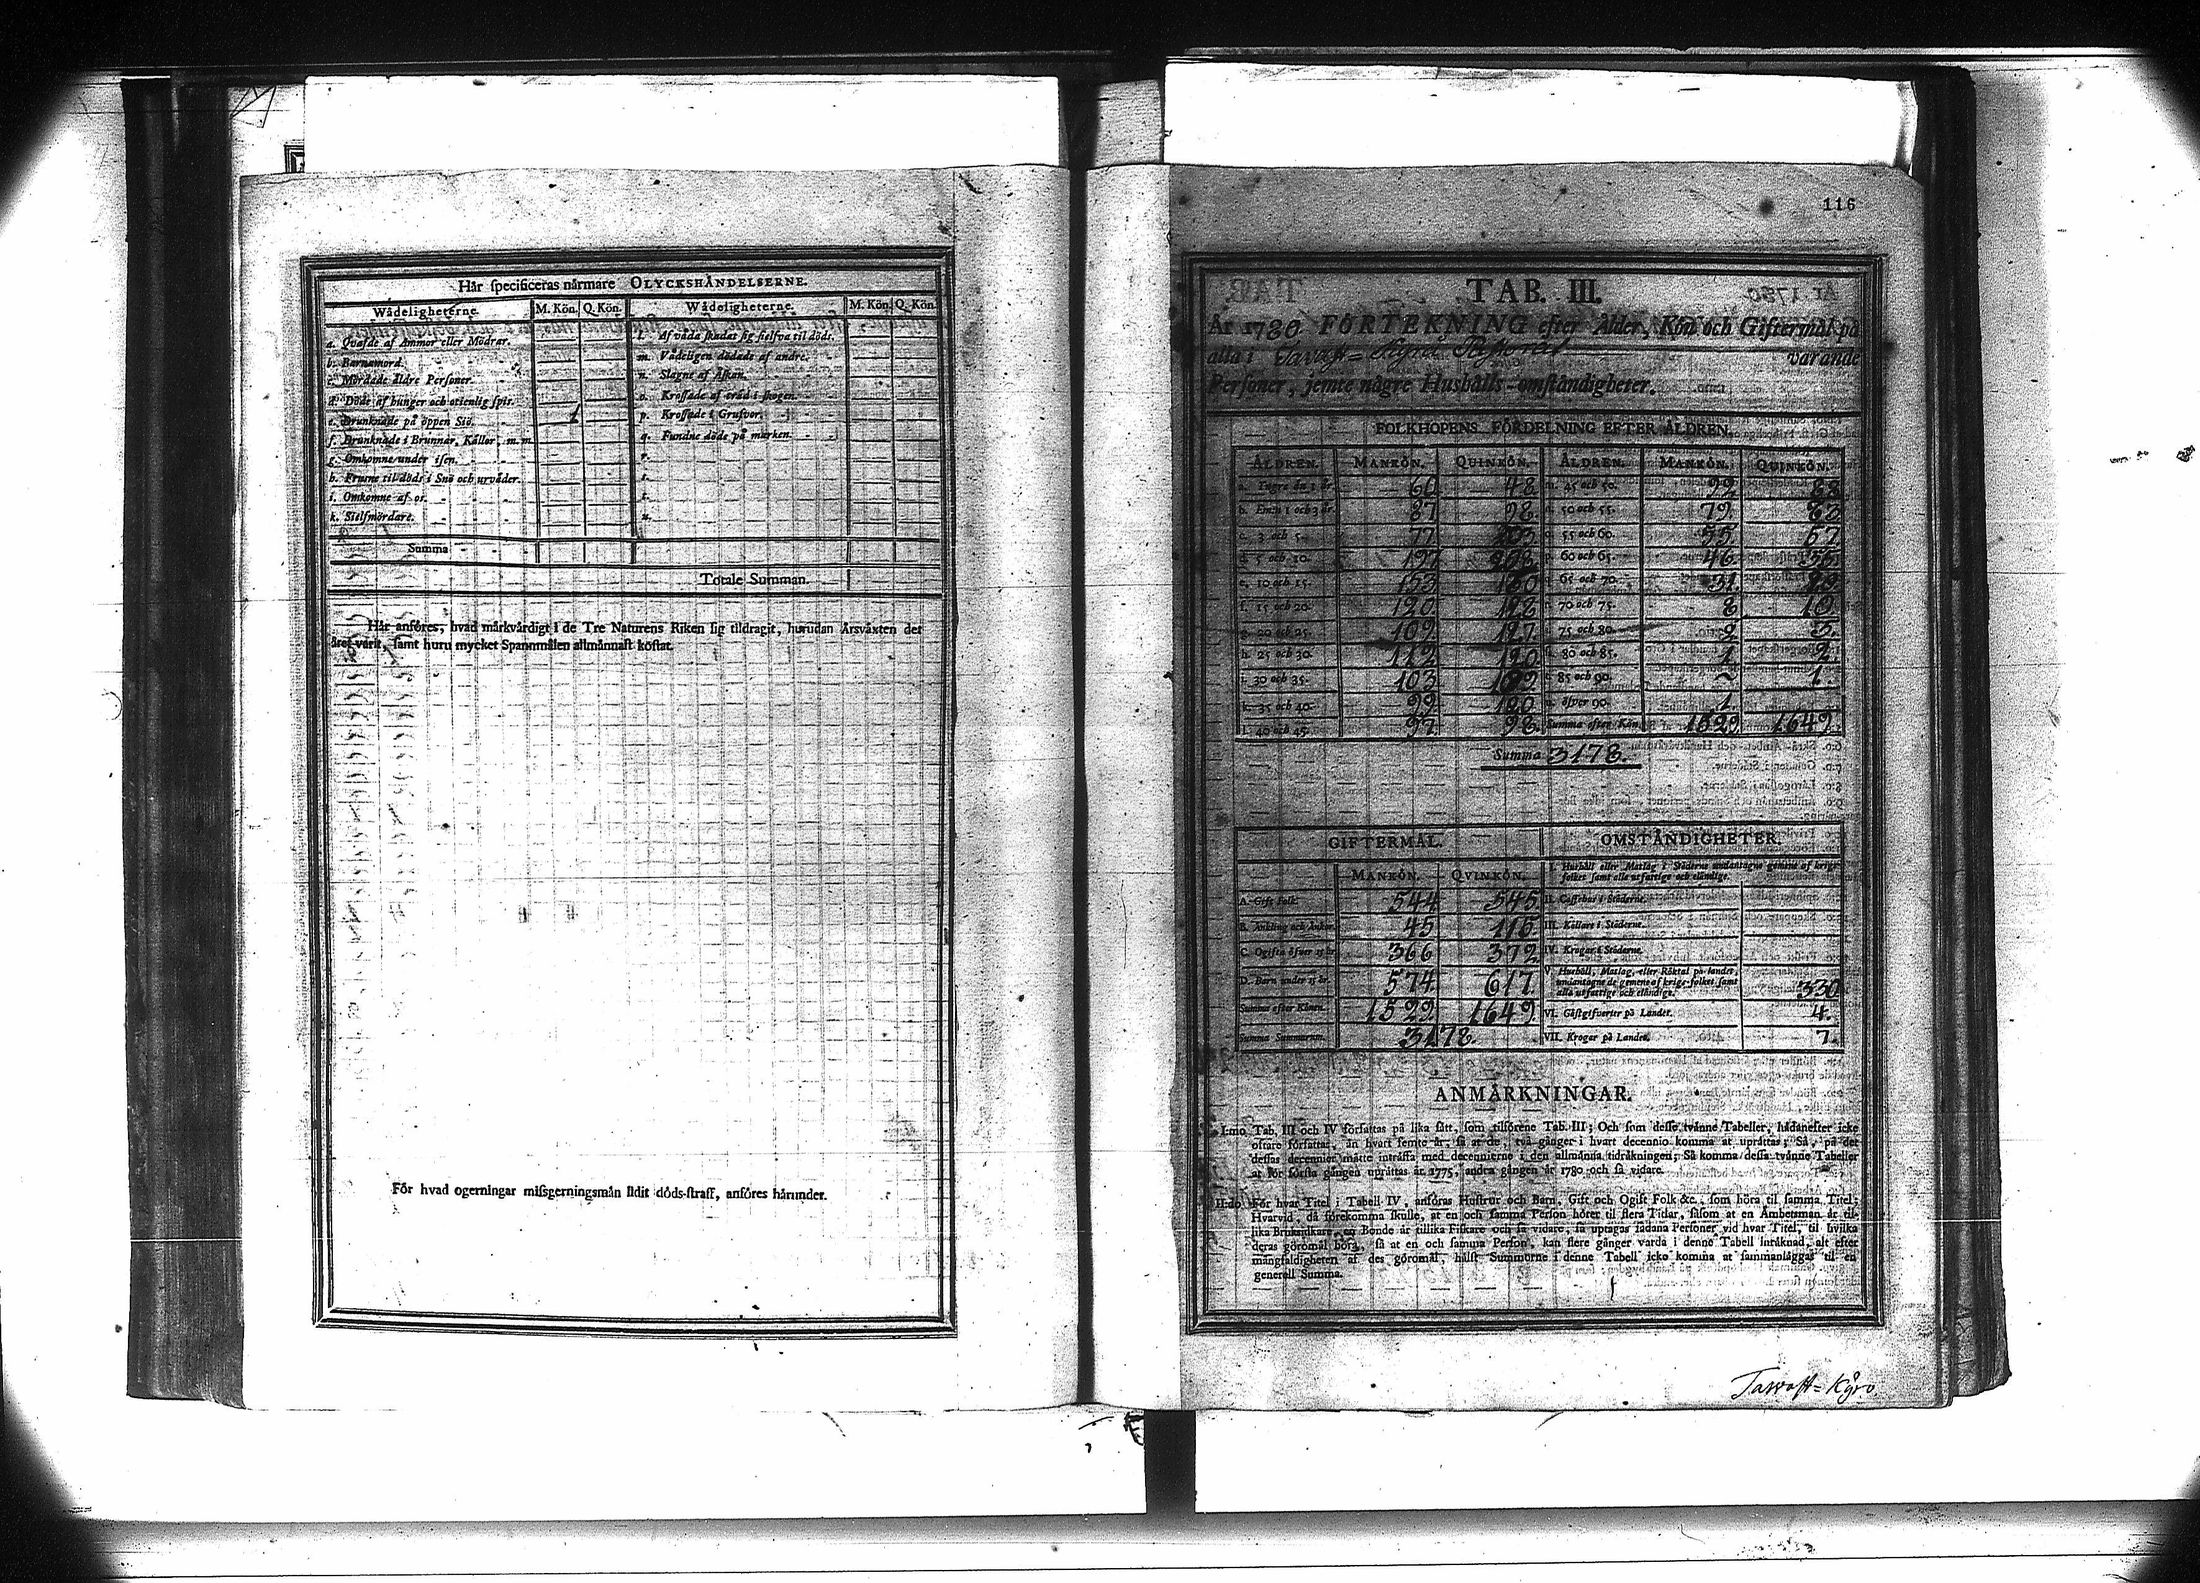 Hår specificeras nårmare OLYCKSHÅNDELSERNE.
Wådeligheterne. M. Kön. Q. Kön. Wådeligheterne. M. Kön. Q. Kön.
a. Qvafde af Ammor eller Mödrar. l. Af våda skadat sig sielfva til döds.
b. Barnamord. m. Vådeligen dödade af andre.
c. Mördade äldre Personer. n. Slagne af Åskan.
d. Döde af hunger och otienlig spis. o. Krossade af träd i skogen.
e. Drunknade på öppen Siö. 1 p. Krossade i Grufvor.
f. Drunknade i Brunnar, Källor, m. m. q. Fundne döde på marken.
g. Omkomne under isen. r.
h. Frusne til döds i Snö och urväder. s.
i. Omkomne af os. t.
k. Sielfmördare. u.
Summa
Totale Summan.
Hår anföres, hvad märkvärdigt i de Tre Naturens Riken sig tildragit, hurudan Årsväxten det
året varit, samt huru mycket Spannmålen allmännast kostat.
För hvad ogerningar missgerningsmän lidit döds-straff, anföres härunder.
116
TAB. III.
År 1780. FÖRTEKNING efter Ålder, Kön och Giftermål på
alla i Tavast-Kyro Pastorat varande
Personer, jemte någre Hushålls-omständigheter.
FOLKHOPENS FÖRDELNING EFTER ÅLDREN.
ÅLDREN. MANKÖN. QUINKÖN. ÅLDREN. MANKÖN. QUINKÖN.
a. Yngre än 1 år. 60 48. m. 45 och 50. 92. 88
b. Emn 1 och 3 år. 87 98. n. 50 och 55. 79. 83
c. 3 och 5. 77 o. 55 och 60. 55 67
d. 5 och 10. 197 208. p. 60 och 65. 46. 35.
e. 10 och 15. 153 160 q. 65 och 70. 31. 29.
f. 15 och 20. 120. 128. r. 70 och 75. 8 10.
g. 20 och 25. 109. 127. 75 och 80. 2 5.
h. 25 och 30. 112 120. 80 och 85. 1 2.
i. 30 och 35. 103 85 och 90. ~ 1.
k. 35 och 40. 99 120. u. öfver 90. 1.
l. 40 och 45. 97. 98. Summa efter Kön. 1529 1649.
Summa 3178.
GIFTERMÅL. OMSTÅNDIGHETER.
MANKÖN. QVINKÖN. I. Hushåll eller Matlag i Städerne undantagne gemene af krigs-
folket samt alle utfattige och eländige.
A. Gift Folk. 544 545 II. Caffehus i Städerne.
B. Änkling och Änkor. 45 115 III. Källare i Städerne.
C. Ogifta öfver 15 år 366 372 IV. Krogar i Städerne.
D. Barn under 15 år. 574. 617 V. Hushåll, Matlag, eller Röktal på landet,
undantagne de gemene af krigs-folket samt
alla utfattige och eländige. 330
Summa efter Könen. 1529. 1649 VI. Gästgifverier på Landet. 4.
Summa Summarum. 3178. VII. Krogar på Landet. 7.
ANMÄRKNINGAR.
I:mo Tab. III och IV författas på lika sätt, som tilförene Tab. III; Och som desse tvänne Tabeller, hädanefter icke
oftare författas, än hvart femte år, så at de, två gånger i hvart decennio komma at uprättas; Så, på det
dessas decennier måtte inträffa med decennierne i den allmänna tidräkningen; Så komma dessa tvänne Tabeller
at för första gången uprättas år 1775, andra gången år 1780 och så vidare.
II:do För hvar Titel i Tabell IV, anföras Hustrur och Barn, Gift och Ogift Folk &c. som höra til samma Titel;
Hvarvid, då förekomma skulle, at en och samma Person hörer til flera Titlar, såsom at en Ämbetsman är til-
lika Bruksidkare, en Bonde är tillika Fiskare och så vidare, så uptagas sådana Personer vid hvar Titel, til hvilka
deras göromål höra, så at en och samma Person, kan flere gånger varda i denne Tabell inräknad, alt efter
mångfaldigheten af des göromål, hälst Summorne i denne Tabell icke komma at sammanläggas til en
generell Summa.
Tavast-Kyro